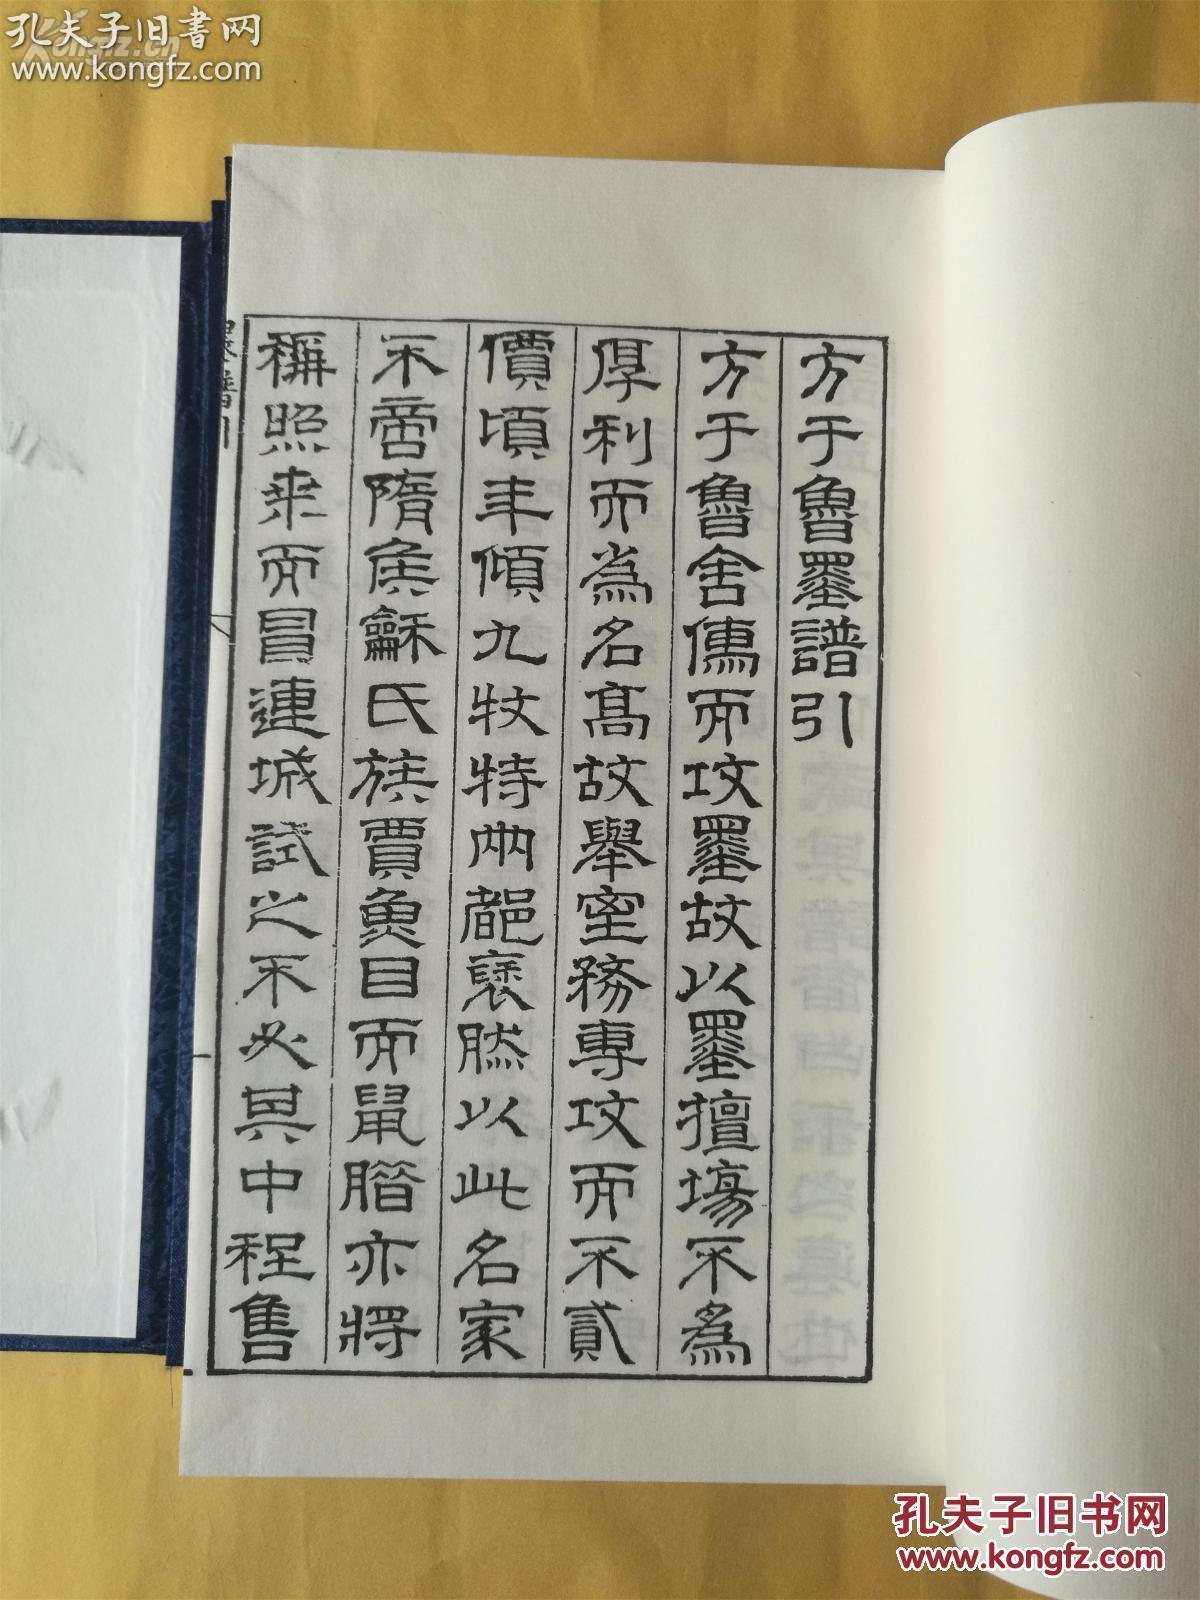 孔夫子旧书网
www.kongfz.com
方于魯墨譜引
方于魯舍儁而攻墨故以墨擅場不為
厚利而為名高故舉室務專攻而不貳
價頃年傾九牧特兩都褎然以此名家
不啻隋侯龢氏族賈魚目而鼠腊亦將
稱照乘而冒連城試之不必其中程售
墨譜引
孔夫子旧书网
www.kongfz.com